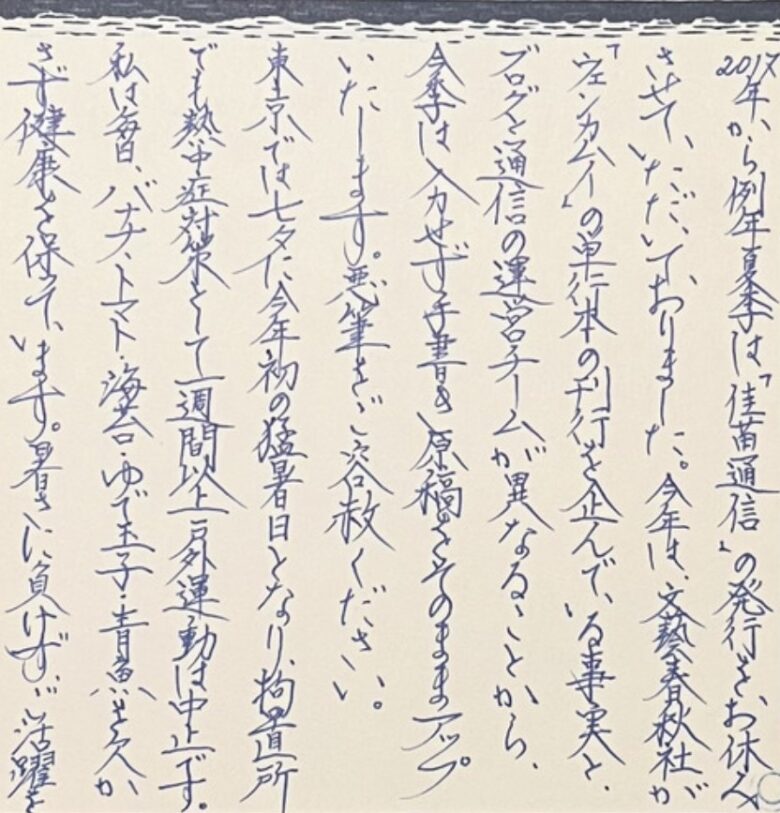 2017年から例年夏季は「佳苗通信」の発行をお休み
させていただいておりました。今年は、文藝春秋社が
「ウェンカムイ」の単行本の刊行を止んでいる事実と、
ブログと通信の運営チームが異なることから、
今季は入力せず手書き原稿をそのままアップ
いたします。悪筆をご容赦ください。
東京では七夕に今年初の猛暑日となり、拘置所
でも熱中症対策として一週間以上戸外運動は中止です。
私は毎日、バナナ・トマト・海苔・ゆで玉子・青魚を欠か
さず健康を保っています。暑さに負けず、ご活躍を